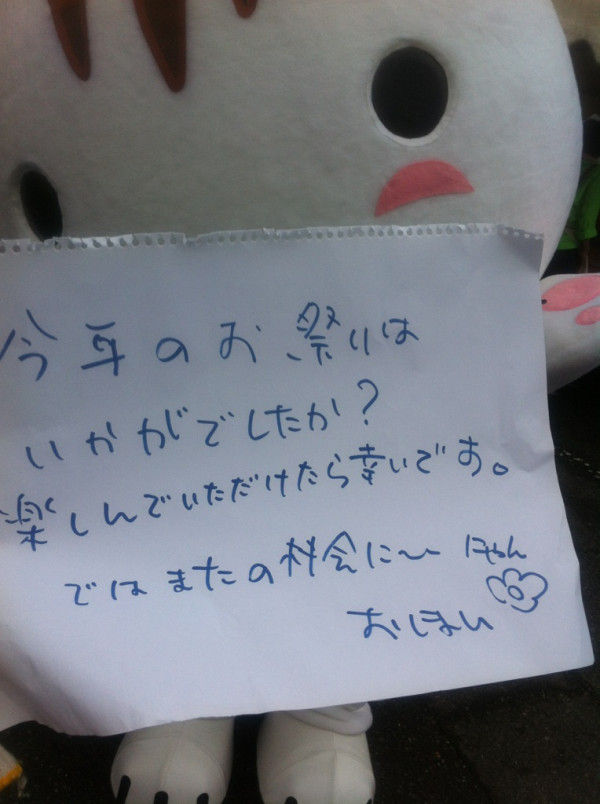 今年のお祭りは
いかがでしたか?
楽しんでいただけたら幸いです。
ではまたの機会に〜 にゃん
おしまい